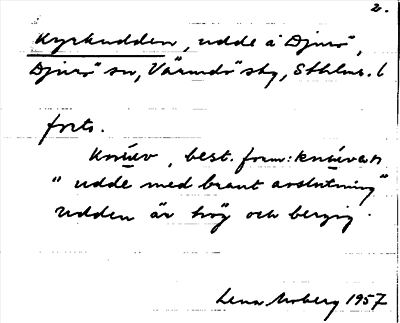 2.
Kyrkudden, udde å Djurö,
Djurö sn, Värmdö sky, Sthlms. l
forts.
knúv, best. form: knúvan
"udde med brant avslutning"
Udden är hög och bergig.
Lena Moberg 1957